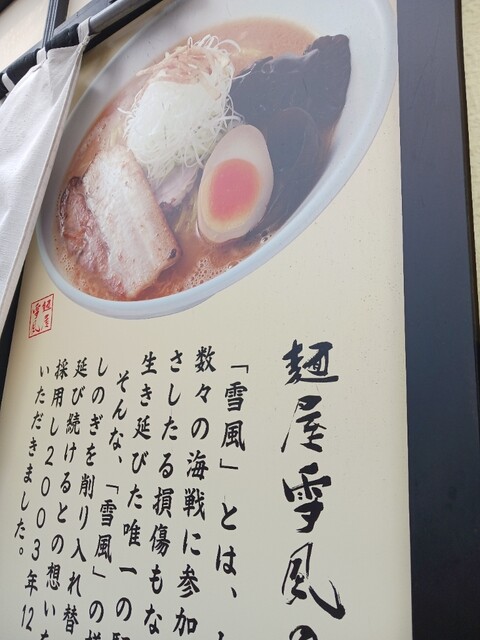 麺屋雪風の
「雪風」とは、
数々の海戦に参加
さしたる損傷もな
生き延びた唯一の駆
そんな、「雪風」の様
しのぎを削り入れ替
延び続けるとの想いを
採用し2003年12
いただきました。
麺屋
雪風